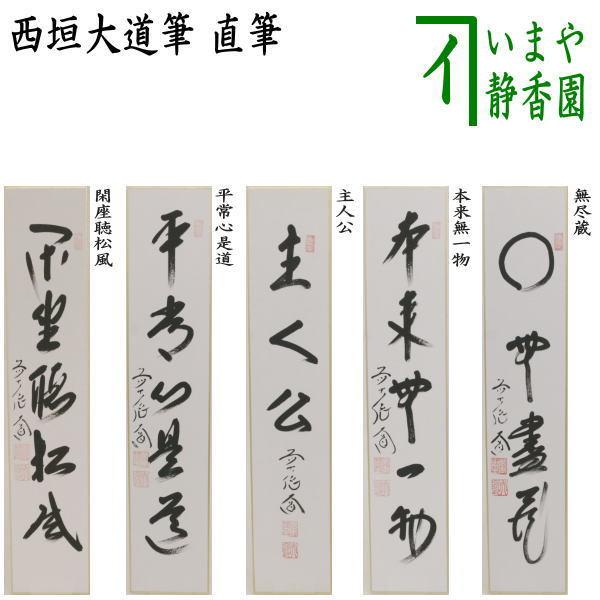 西垣大道筆 直筆
いまや
静香園
無尽蔵
無盡蔵
本来無一物
本来無一物
主人公
主人公
平常心是道
平常心是道
閑座聴松風
閑坐聴松風